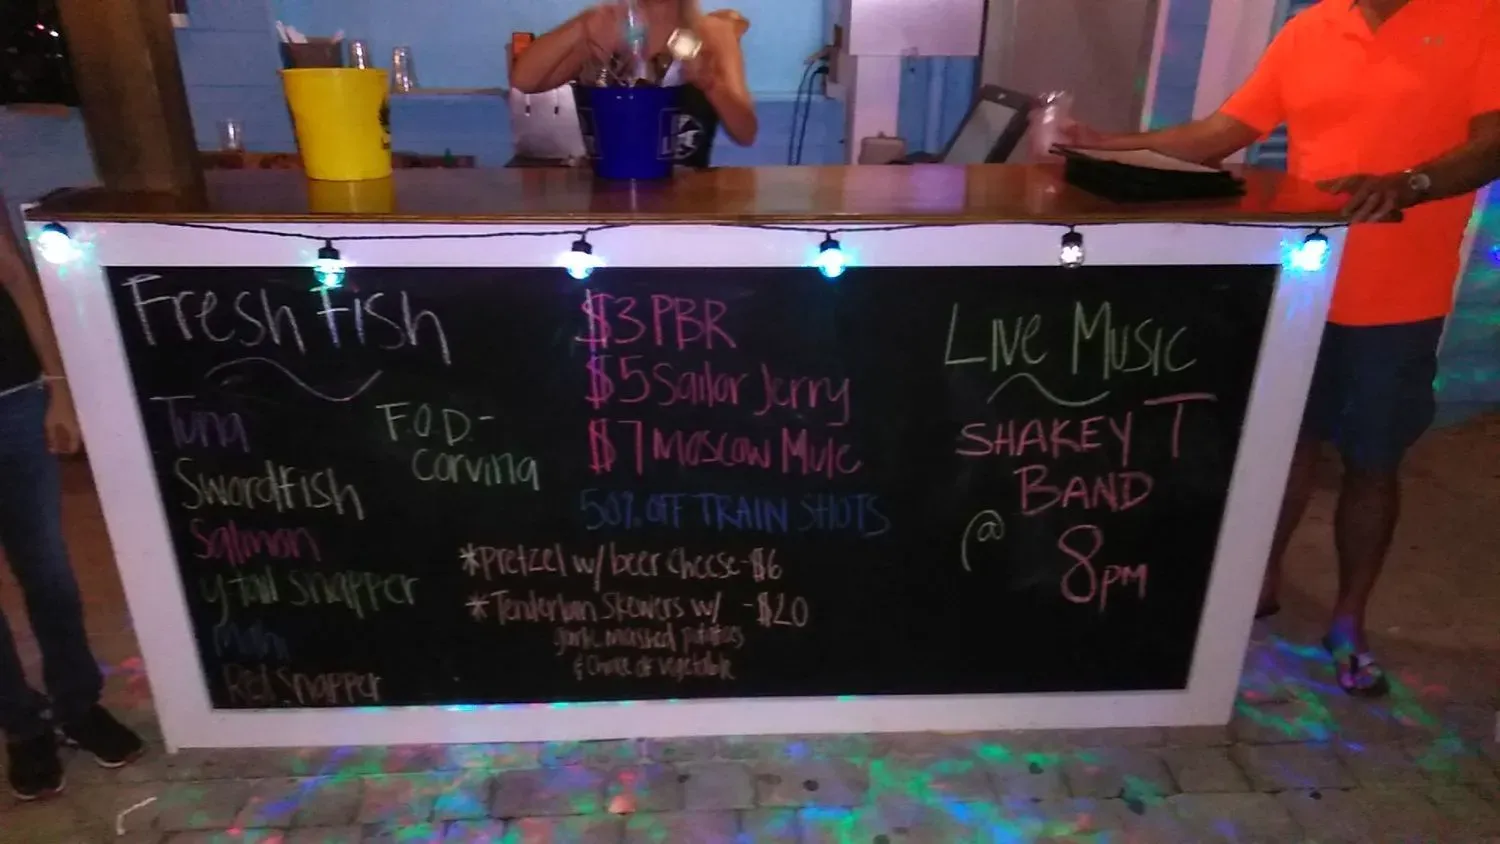 Fresh Fish
Tuna
Swordfish
Salmon
y tail snapper
Mahi
Red Snapper
F.O.D-
corvina
$3 PBR
$5 Sailor Jerry
$7 Moscow Mule
50% OFF TRAIN SHOTS
*Pretzel w/ beer cheese-$6
*Tenderloin Skewers w/ -$20
garlic mashed potatoes
& choice of vegetable
LIVE MUSIC
SHAKEY T
BAND
@ 8PM